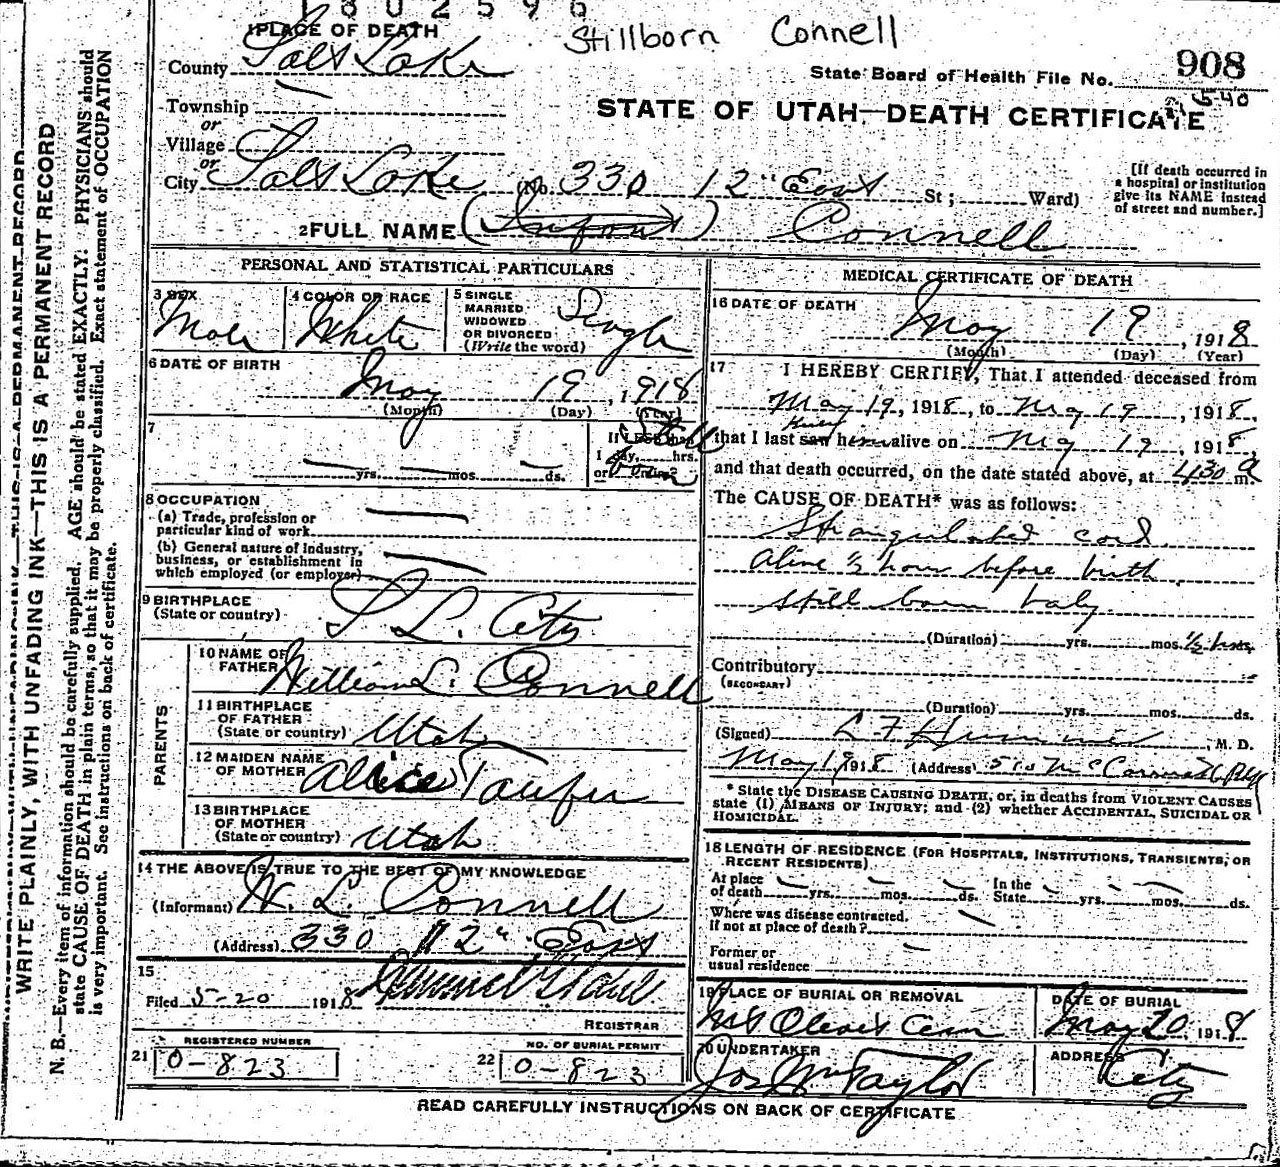 1802596
Stillborn Connell
1 PLACE OF DEATH
County Salt Lake
State Board of Health File No. 908
540
Township
or
Village
or
City Salt Lake (No. 330 12" East St; Ward)
STATE OF UTAH—DEATH CERTIFICATE
[If death occurred in
a hospital or institution
give its NAME instead
of street and number.]
2 FULL NAME (Infant) Connell
PERSONAL AND STATISTICAL PARTICULARS
3 SEX
Male
4 COLOR OR RACE
White
5 SINGLE
MARRIED
WIDOWED
OR DIVORCED
(Write the word)
Single
6 DATE OF BIRTH
May 19, 1918
(Month) (Day) (Year)
7
yrs. mos. ds.
If LESS than
1 day, hrs.
or min?
8 OCCUPATION
(a) Trade, profession or
particular kind of work
(b) General nature of industry,
business, or establishment in
which employed (or employer)
9 BIRTHPLACE
(State or country)
S L. City
PARENTS
10 NAME OF
FATHER
William L. Connell
11 BIRTHPLACE
OF FATHER
(State or country)
Utah
12 MAIDEN NAME
OF MOTHER
Alice Taufer
13 BIRTHPLACE
OF MOTHER
(State or country)
Utah
14 THE ABOVE IS TRUE TO THE BEST OF MY KNOWLEDGE
(Informant) W. L. Connell
(Address) 330 12" East
15
Filed 5-20 1918
REGISTRAR
REGISTERED NUMBER
21 0-823
NO. OF BURIAL PERMIT
22 0-823
MEDICAL CERTIFICATE OF DEATH
16 DATE OF DEATH
May 19, 1918
(Month) (Day) (Year)
17 I HEREBY CERTIFY, That I attended deceased from
May 19, 1918, to May 19, 1918,
that I last saw him alive on May 19, 1918
and that death occurred, on the date stated above, at 430 a m.
The CAUSE OF DEATH* was as follows:
Strangulated cord
Alive ½ hour before birth
still born baby
(Duration) yrs. mos. ½ hour
Contributory
(SECONDARY)
(Duration) yrs. mos. ds.
(Signed) M. D.
May 19 1918 (Address) 510 McCornick Bldg
* State the DISEASE CAUSING DEATH, or, in deaths from VIOLENT CAUSES
state (1) MEANS OF INJURY; and (2) whether ACCIDENTAL, SUICIDAL OR
HOMICIDAL.
18 LENGTH OF RESIDENCE (FOR HOSPITALS, INSTITUTIONS, TRANSIENTS, OR
RECENT RESIDENTS)
At place
of death yrs. mos. ds. In the
State yrs. mos. ds.
Where was disease contracted,
if not at place of death?
Former or
usual residence
19 PLACE OF BURIAL OR REMOVAL
Mt Olivet Cem
DATE OF BURIAL
May 20 1918
20 UNDERTAKER
Jos Wm Taylor
ADDRESS
City
READ CAREFULLY INSTRUCTIONS ON BACK OF CERTIFICATE
WRITE PLAINLY, WITH UNFADING INK—THIS IS A PERMANENT RECORD
N. B.—Every item of information should be carefully supplied. AGE should be stated EXACTLY. PHYSICIANS should
state CAUSE OF DEATH in plain terms, so that it may be properly classified. Exact statement of OCCUPATION
is very important. See instructions on back of certificate.